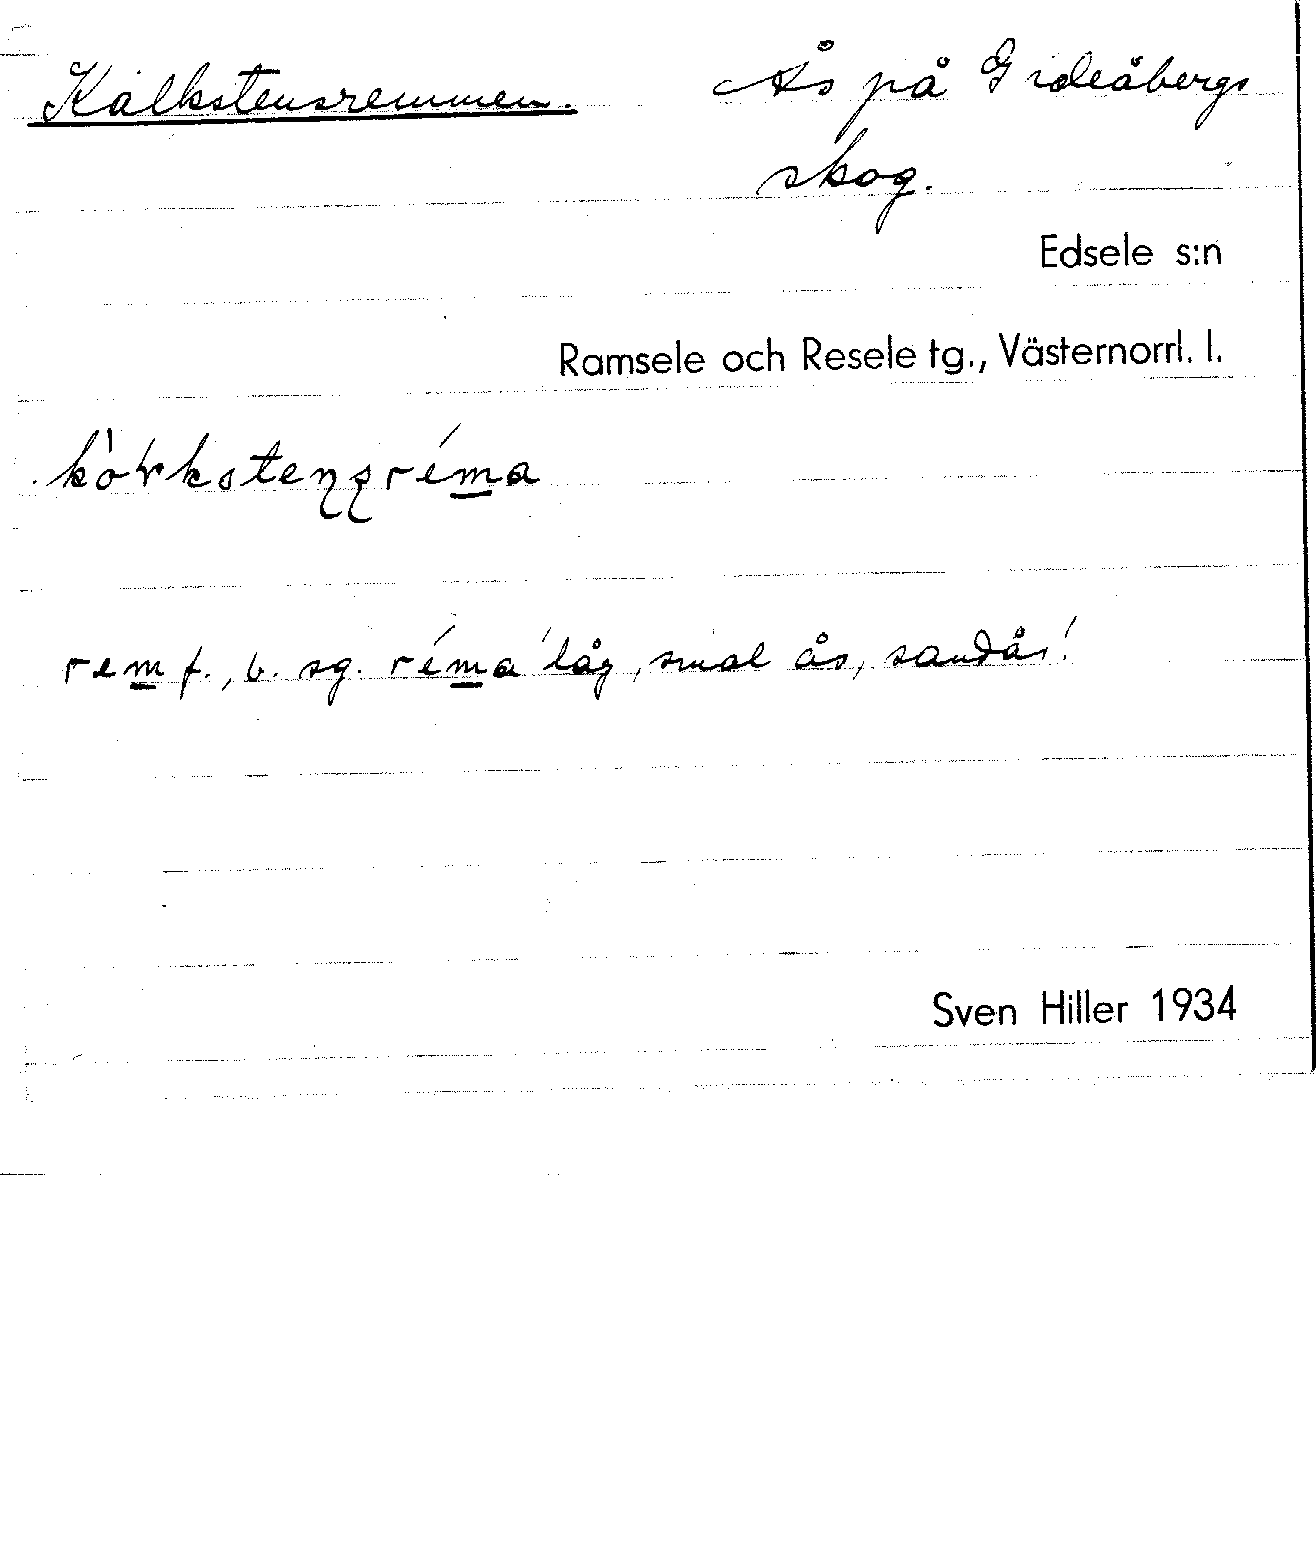 Kalkstensremmen. Ås på Gideåbergs
skog.
Edsele s:n
Ramsele och Resele tg., Västernorrl. l.
rem̲ f., b. sg. rém̲a 'låg, smal ås, sandås'.
Sven Hiller 1934